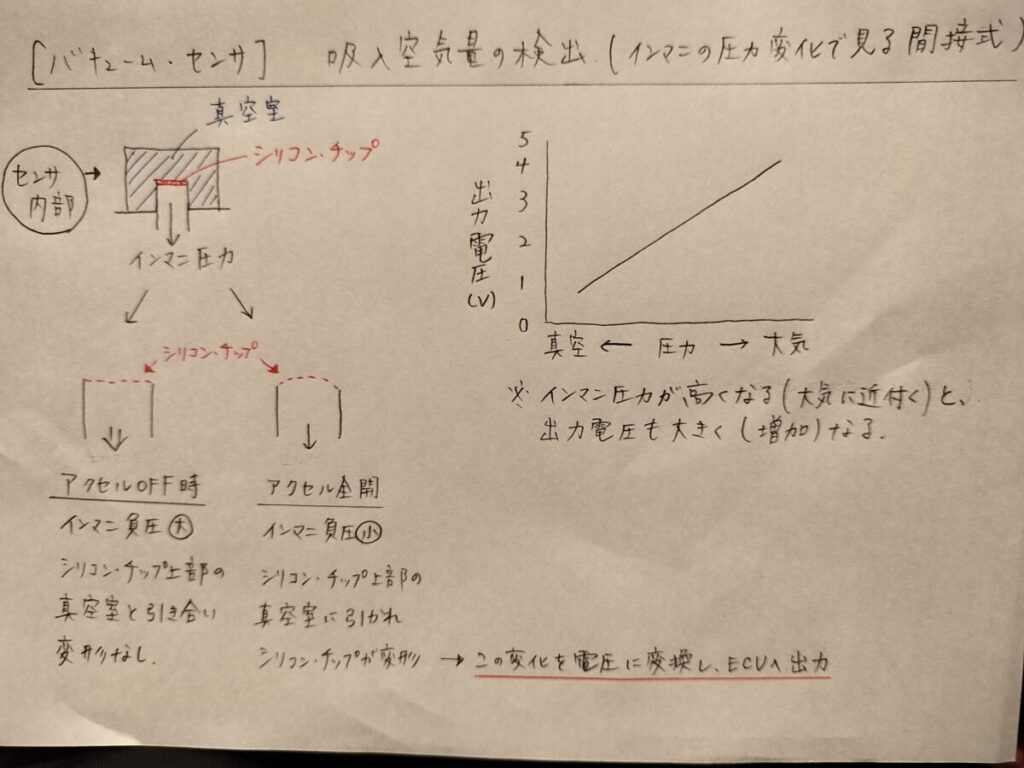 [バキューム・センサ] 吸入空気量の検出.(インマニの圧力変化で見る間接式)
真空室
シリコン・チップ
センサ
内部
インマニ圧力
シリコン・チップ
アクセルOFF時
インマニ負圧大
シリコン・チップ上部の
真空室と引き合い
変形なし.
アクセル全開
インマニ負圧小
シリコン・チップ上部の
真空室に引かれ
シリコン・チップが変形 → この変化を電圧に変換し、ECUへ出力
出力電圧(V)
5
4
3
2
1
0
真空 ← 圧力 → 大気
※ インマニ圧力が高くなる(大気に近付く)と、
出力電圧も大きく(増加)なる.